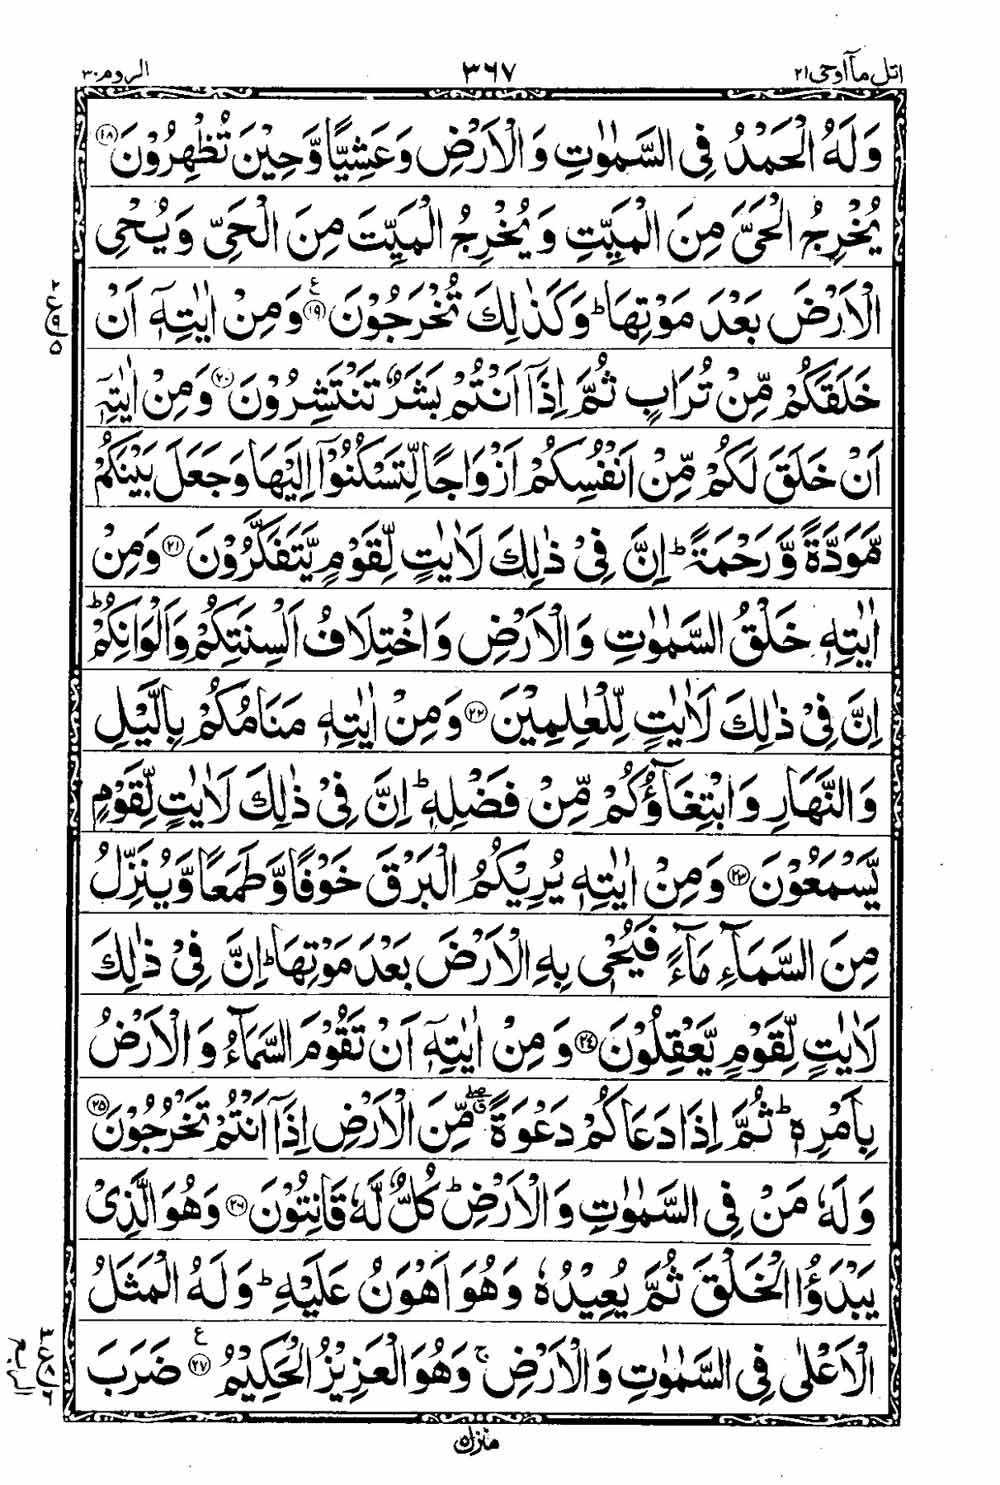 اتل ماۤ اوحی ۲۱ ۳۶۷ الروم ۳۰
وَلَهُ الْحَمْدُ فِی السَّمٰوٰتِ وَالْاَرْضِ وَعَشِیًّا وَّحِیْنَ تُظْهِرُوْنَ ﴿۱۸﴾
یُخْرِجُ الْحَیَّ مِنَ الْمَیِّتِ وَیُخْرِجُ الْمَیِّتَ مِنَ الْحَیِّ وَیُحْیِ
الْاَرْضَ بَعْدَ مَوْتِهَا ؕ وَكَذٰلِكَ تُخْرَجُوْنَ ﴿۱۹﴾ ع وَمِنْ اٰیٰتِهٖۤ اَنْ
خَلَقَكُمْ مِّنْ تُرَابٍ ثُمَّ اِذَاۤ اَنْتُمْ بَشَرٌ تَنْتَشِرُوْنَ ﴿۲۰﴾ وَمِنْ اٰیٰتِهٖۤ
اَنْ خَلَقَ لَكُمْ مِّنْ اَنْفُسِكُمْ اَزْوَاجًا لِّتَسْكُنُوْۤا اِلَیْهَا وَجَعَلَ بَیْنَكُمْ
مَّوَدَّةً وَّرَحْمَةً ؕ اِنَّ فِیْ ذٰلِكَ لَاٰیٰتٍ لِّقَوْمٍ یَّتَفَكَّرُوْنَ ﴿۲۱﴾ وَمِنْ
اٰیٰتِهٖ خَلْقُ السَّمٰوٰتِ وَالْاَرْضِ وَاخْتِلَافُ اَلْسِنَتِكُمْ وَاَلْوَانِكُمْ ؕ
اِنَّ فِیْ ذٰلِكَ لَاٰیٰتٍ لِّلْعٰلِمِیْنَ ﴿۲۲﴾ وَمِنْ اٰیٰتِهٖ مَنَامُكُمْ بِالَّیْلِ
وَالنَّهَارِ وَابْتِغَآؤُكُمْ مِّنْ فَضْلِهٖ ؕ اِنَّ فِیْ ذٰلِكَ لَاٰیٰتٍ لِّقَوْمٍ
یَّسْمَعُوْنَ ﴿۲۳﴾ وَمِنْ اٰیٰتِهٖ یُرِیْكُمُ الْبَرْقَ خَوْفًا وَّطَمَعًا وَّیُنَزِّلُ
مِنَ السَّمَآءِ مَآءً فَیُحْیٖ بِهِ الْاَرْضَ بَعْدَ مَوْتِهَا ؕ اِنَّ فِیْ ذٰلِكَ
لَاٰیٰتٍ لِّقَوْمٍ یَّعْقِلُوْنَ ﴿۲۴﴾ وَمِنْ اٰیٰتِهٖۤ اَنْ تَقُوْمَ السَّمَآءُ وَالْاَرْضُ
بِاَمْرِهٖ ؕ ثُمَّ اِذَا دَعَاكُمْ دَعْوَةً ۖۗ مِّنَ الْاَرْضِ اِذَاۤ اَنْتُمْ تَخْرُجُوْنَ ﴿۲۵﴾
وَلَهٗ مَنْ فِی السَّمٰوٰتِ وَالْاَرْضِ ؕ كُلٌّ لَّهٗ قَانِتُوْنَ ﴿۲۶﴾ وَهُوَ الَّذِیْ
یَبْدَؤُا الْخَلْقَ ثُمَّ یُعِیْدُهٗ وَهُوَ اَهْوَنُ عَلَیْهِ ؕ وَلَهُ الْمَثَلُ
الْاَعْلٰى فِی السَّمٰوٰتِ وَالْاَرْضِ ۚ وَهُوَ الْعَزِیْزُ الْحَكِیْمُ ﴿۲۷﴾ ع ضَرَبَ
منزل ۵